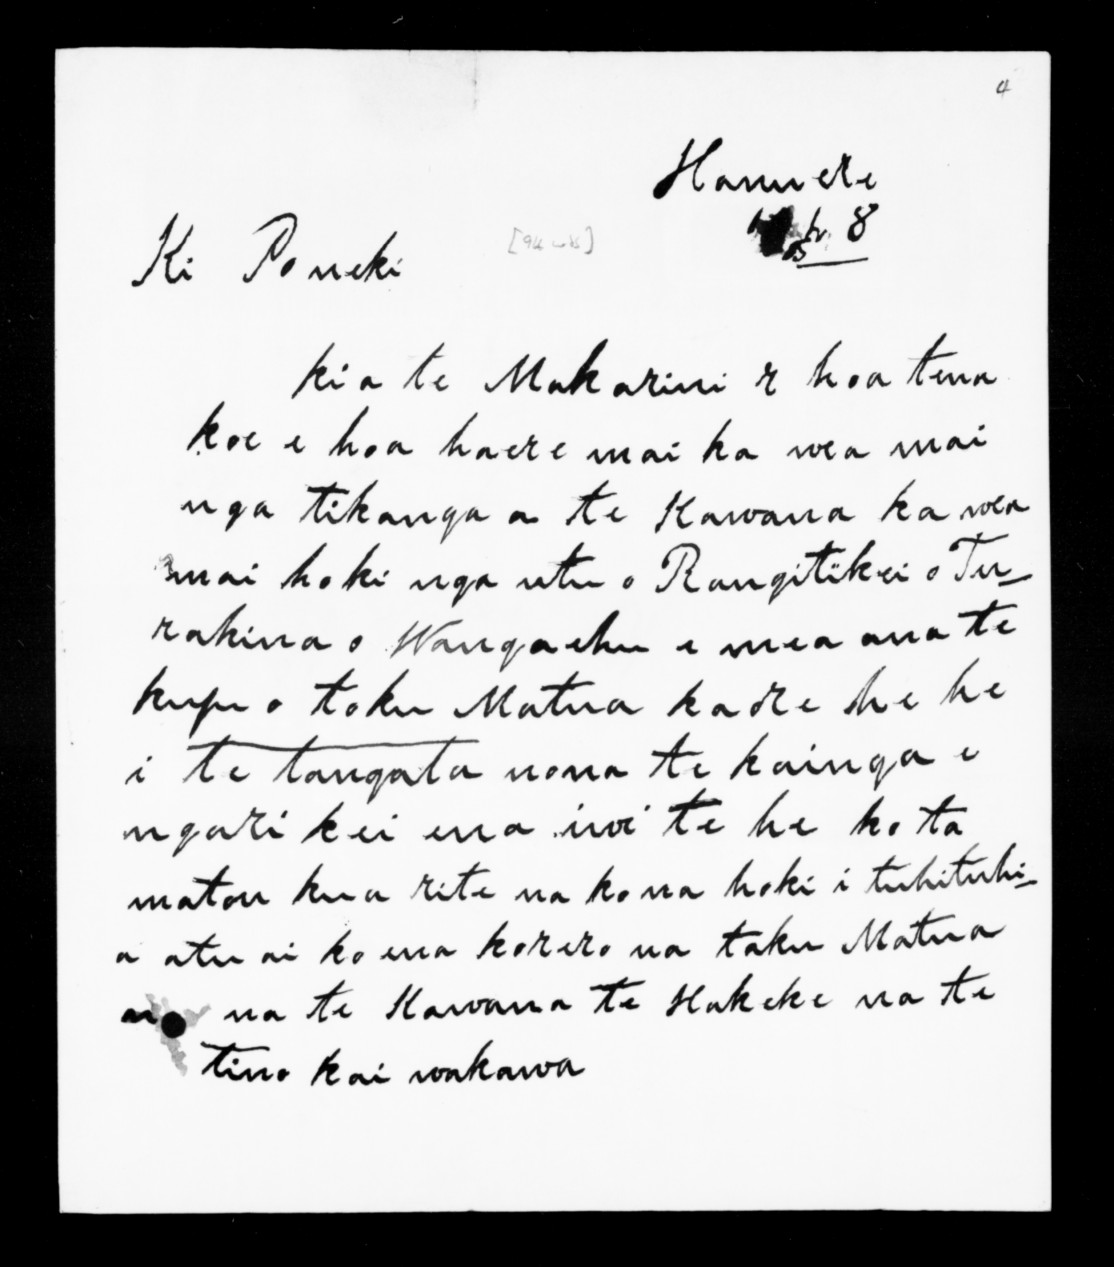 4
Hanuere
8
Ki Poneki
kia te Makarini e hoa tena
koe e hoa haere mai ka wea mai
nga tikanga a te Kawana ka wea
mai hoki nga utu o Rangitikei o Tu-
rakina o Wangaehu e mea ana te
kupu o toku Matua kaore he he
i te tangata nona te kainga e
ngari kei ena iwi te he ko ta
matou kua rite na kona hoki i tuhituhi-
a atu ai ko ena korero na taku Matua
na te Kawana te Hakeke na te
tino kai wakawa